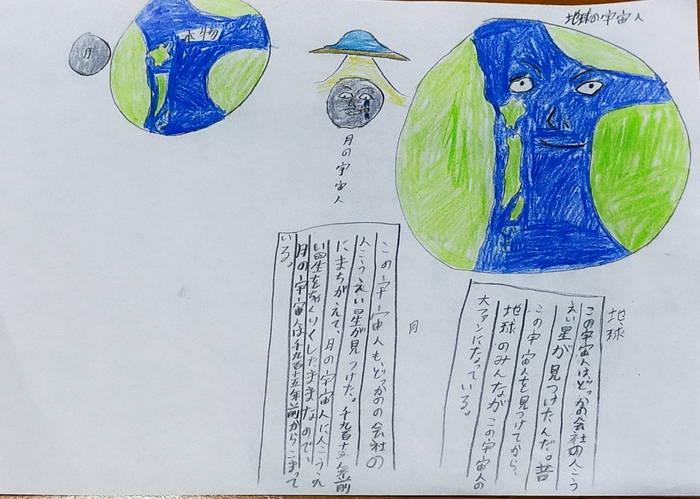 地球の宇宙人
本物
月
月の宇宙人
地球
この宇宙人はどっかの会社の人こう
えい星が見つけたんだ。昔
この宇宙人を見つけてから、
地球のみんながこの宇宙人の
大ファンになっている。
月
この宇宙人も、どっかのの会社の
人こうえい星が見つけた。千九百十五年前
にまちがえて、月の宇宙人に人こうえ
い星を したままなので、
月の宇宙人は千九百十五年前からこまって
いる。